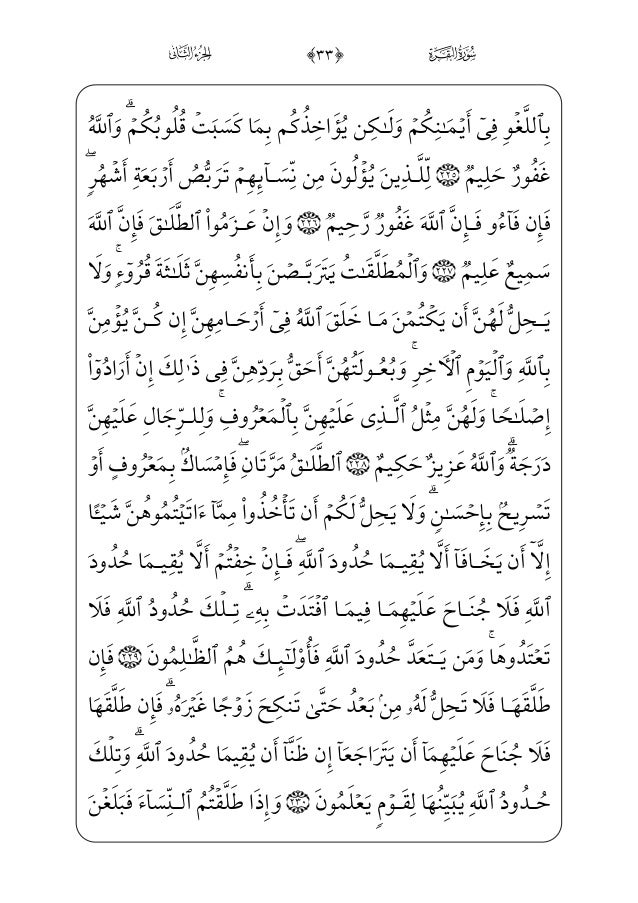 سُورَةُ البَقَرَةِ ﴿٣٣﴾ الجُزءُ الثَّانِي
بِٱللَّغۡوِ فِىٓ أَيۡمَـٰنِكُمۡ وَلَـٰكِن يُؤَاخِذُكُم بِمَا كَسَبَتۡ قُلُوبُكُمۡۗ وَٱللَّهُ
غَفُورٌ حَلِيمٌ ٢٢٥ لِّلَّذِينَ يُؤۡلُونَ مِن نِّسَآئِهِمۡ تَرَبُّصُ أَرۡبَعَةِ أَشۡهُرٍۖ
فَإِن فَآءُو فَإِنَّ ٱللَّهَ غَفُورٌ رَّحِيمٌ ٢٢٦ وَإِنۡ عَزَمُواْ ٱلطَّلَـٰقَ فَإِنَّ ٱللَّهَ
سَمِيعٌ عَلِيمٌ ٢٢٧ وَٱلۡمُطَلَّقَـٰتُ يَتَرَبَّصۡنَ بِأَنفُسِهِنَّ ثَلَـٰثَةَ قُرُوٓءٍۚ وَلَا
يَحِلُّ لَهُنَّ أَن يَكۡتُمۡنَ مَا خَلَقَ ٱللَّهُ فِىٓ أَرۡحَامِهِنَّ إِن كُنَّ يُؤۡمِنَّ
بِٱللَّهِ وَٱلۡيَوۡمِ ٱلۡأَخِرِۚ وَبُعُولَتُهُنَّ أَحَقُّ بِرَدِّهِنَّ فِى ذَٰلِكَ إِنۡ أَرَادُوٓاْ
إِصۡلَـٰحًاۚ وَلَهُنَّ مِثۡلُ ٱلَّذِى عَلَيۡهِنَّ بِٱلۡمَعۡرُوفِۚ وَلِلرِّجَالِ عَلَيۡهِنَّ
دَرَجَةٌۗ وَٱللَّهُ عَزِيزٌ حَكِيمٌ ٢٢٨ ٱلطَّلَـٰقُ مَرَّتَانِۖ فَإِمۡسَاكُۢ بِمَعۡرُوفٍ أَوۡ
تَسۡرِيحُۢ بِإِحۡسَـٰنٍۗ وَلَا يَحِلُّ لَكُمۡ أَن تَأۡخُذُواْ مِمَّآ ءَاتَيۡتُمُوهُنَّ شَيۡـًٔا
إِلَّآ أَن يَخَافَآ أَلَّا يُقِيمَا حُدُودَ ٱللَّهِۖ فَإِنۡ خِفۡتُمۡ أَلَّا يُقِيمَا حُدُودَ
ٱللَّهِ فَلَا جُنَاحَ عَلَيۡهِمَا فِيمَا ٱفۡتَدَتۡ بِهِۦۗ تِلۡكَ حُدُودُ ٱللَّهِ فَلَا
تَعۡتَدُوهَاۚ وَمَن يَتَعَدَّ حُدُودَ ٱللَّهِ فَأُوْلَـٰٓئِكَ هُمُ ٱلظَّـٰلِمُونَ ٢٢٩ فَإِن
طَلَّقَهَا فَلَا تَحِلُّ لَهُۥ مِنۢ بَعۡدُ حَتَّىٰ تَنكِحَ زَوۡجًا غَيۡرَهُۥۗ فَإِن طَلَّقَهَا
فَلَا جُنَاحَ عَلَيۡهِمَآ أَن يَتَرَاجَعَآ إِن ظَنَّآ أَن يُقِيمَا حُدُودَ ٱللَّهِۗ وَتِلۡكَ
حُدُودُ ٱللَّهِ يُبَيِّنُهَا لِقَوۡمٍ يَعۡلَمُونَ ٢٣٠ وَإِذَا طَلَّقۡتُمُ ٱلنِّسَآءَ فَبَلَغۡنَ